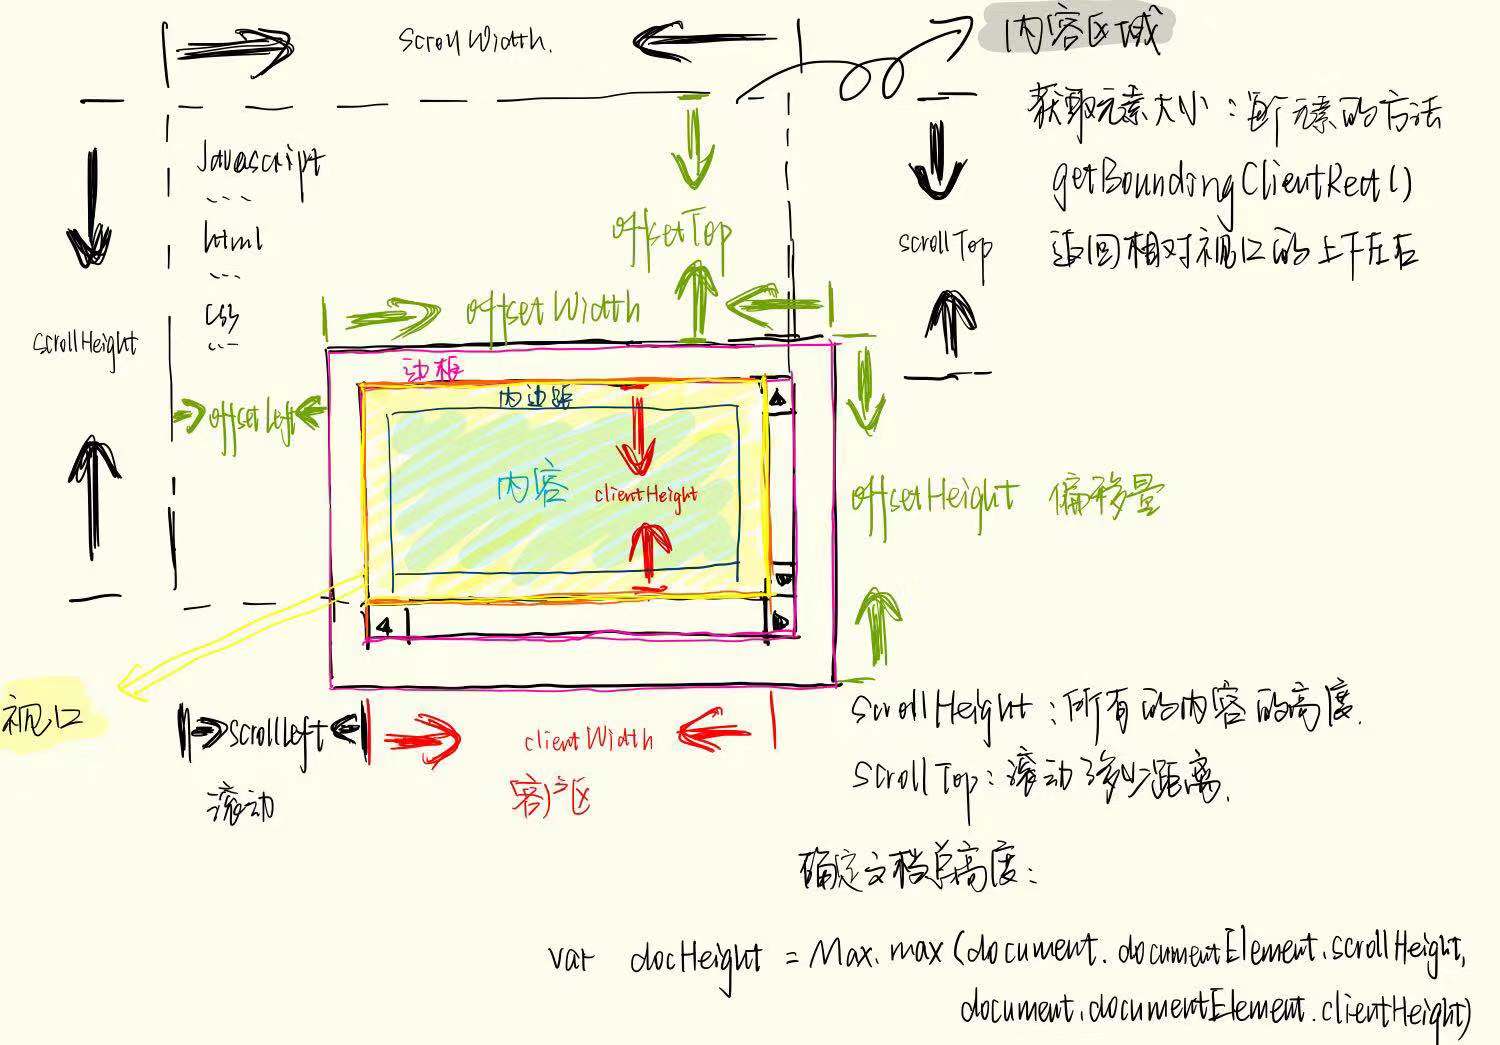 ScrollWidth.
内容区域
获取元素大小：每个元素的方法
getBoundingClientRect()
返回相对视口的上下左右
Javascript
...
html
...
css
...
scrollHeight
offsetTop
scrollTop
offsetWidth
边框
内边距
offsetLeft
内容
clientHeight
offsetHeight 偏移量
视口
scrollLeft
滚动
clientWidth
客户区
ScrollHeight：所有的内容的高度.
ScrollTop：滚动多少距离.
确定文档总高度：
var docHeight = Max.max(document.documentElement.scrollHeight,
document.documentElement.clientHeight)